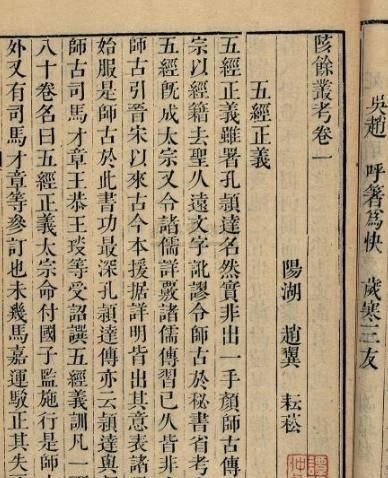 吳趙 呼箸爲快 歲寒三友
陔餘叢考卷一
陽湖 趙翼 耘菘
五經正義
五經正義雖署孔穎達名然實非出一手顏師古傳
宗以經籍去聖久遠文字訛謬令師古於秘書省考
五經既成太宗又令諸儒詳覈諸儒傳習已久皆非
師古引晉宋以來古今本援据詳明皆出其意表諸
始服是師古於此書功最深孔穎達傳亦云穎達與
師古司馬才章王恭王琰等受詔譔五經義訓凡一
八十卷名曰五經正義太宗命付國子監施行是師
外又有司馬才章等參訂也未幾馬嘉運駮正其失